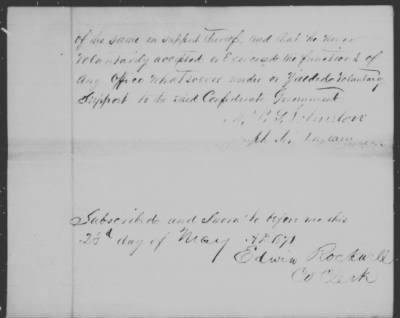 of the same in support thereof, and that he never
Voluntarily accepted or Exercised the functions of
Any Office Whatsoever under or Yielded Voluntary
Support to the said Confederate Government

Subscribed and Sworn to before me this
23d day of May AD 1871
Edwin Rockwell
Co Clerk